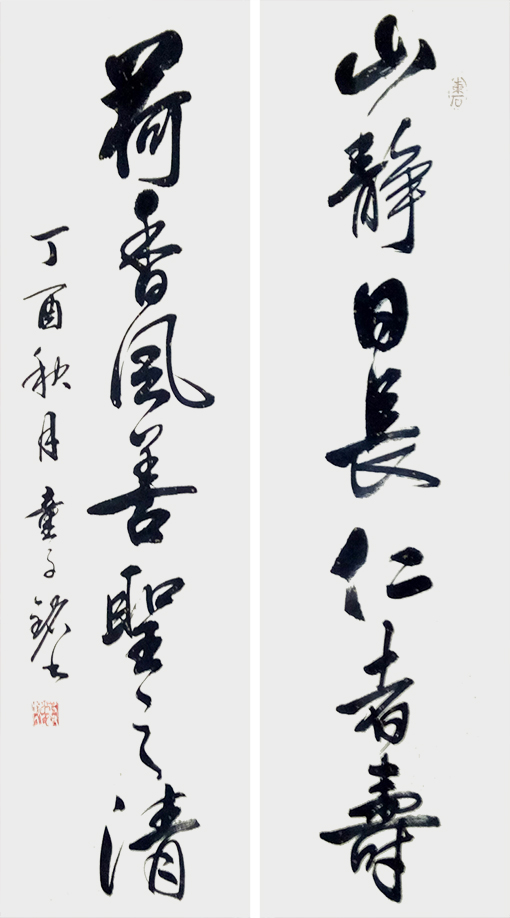 山静日長仁者壽
荷香風善聖之清
丁酉秋月童子銘书